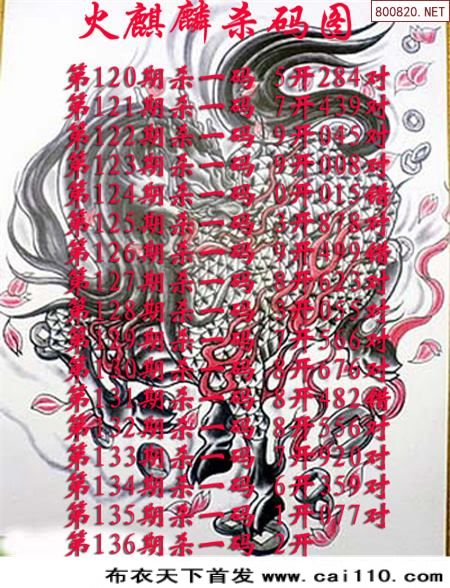 800820.NET
火麒麟杀码图
第120期杀一码 5开284对
第121期杀一码 7开439对
第122期杀一码 9开045对
第123期杀一码 9开008对
第124期杀一码 0开015错
第125期杀一码 3开878对
第126期杀一码 9开499错
第127期杀一码 8开623对
第128期杀一码 开055对
第129期杀一码 开566对
第130期杀一码 8开676对
第131期杀一码 8开482错
第132期杀一码 8开556对
第133期杀一码 开920对
第134期杀一码 6开259对
第135期杀一码 1开077对
第136期杀一码 2开
布衣天下首发 www.cai110.com